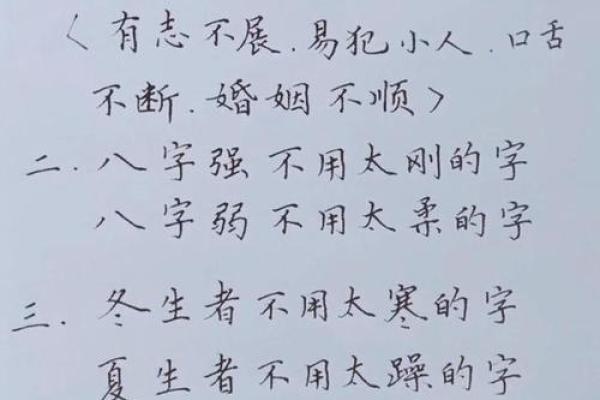 〈有志不展.易犯小人.口舌
不断.婚姻不顺〉
二.八字强不用太刚的字
八字弱不用太柔的字
三.冬生者不用太寒的字
夏生者不用太躁的字